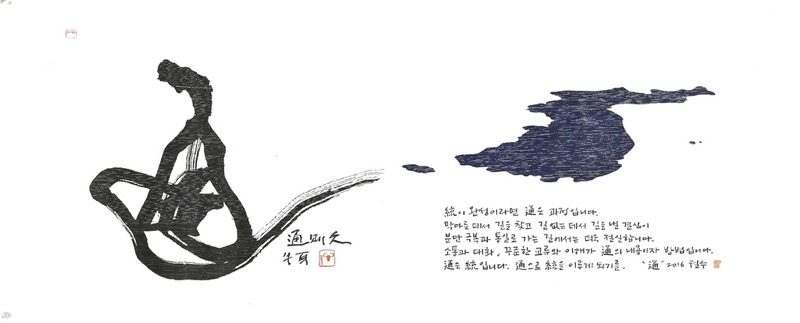 通
通则久
牛耳
統이 완성이라면 通은 과정입니다.
막다른 데서 길을 찾고 길 없는 데서 길을 낼 결심이
분단 극복과 통일로 가는 길에서는 더욱 절실합니다.
소통과 대화, 꾸준한 교류와 이해가 通의 내용이자 방법입니다.
通은 統입니다. 通으로 統을 이루게 되기를. '通' 2016 철수